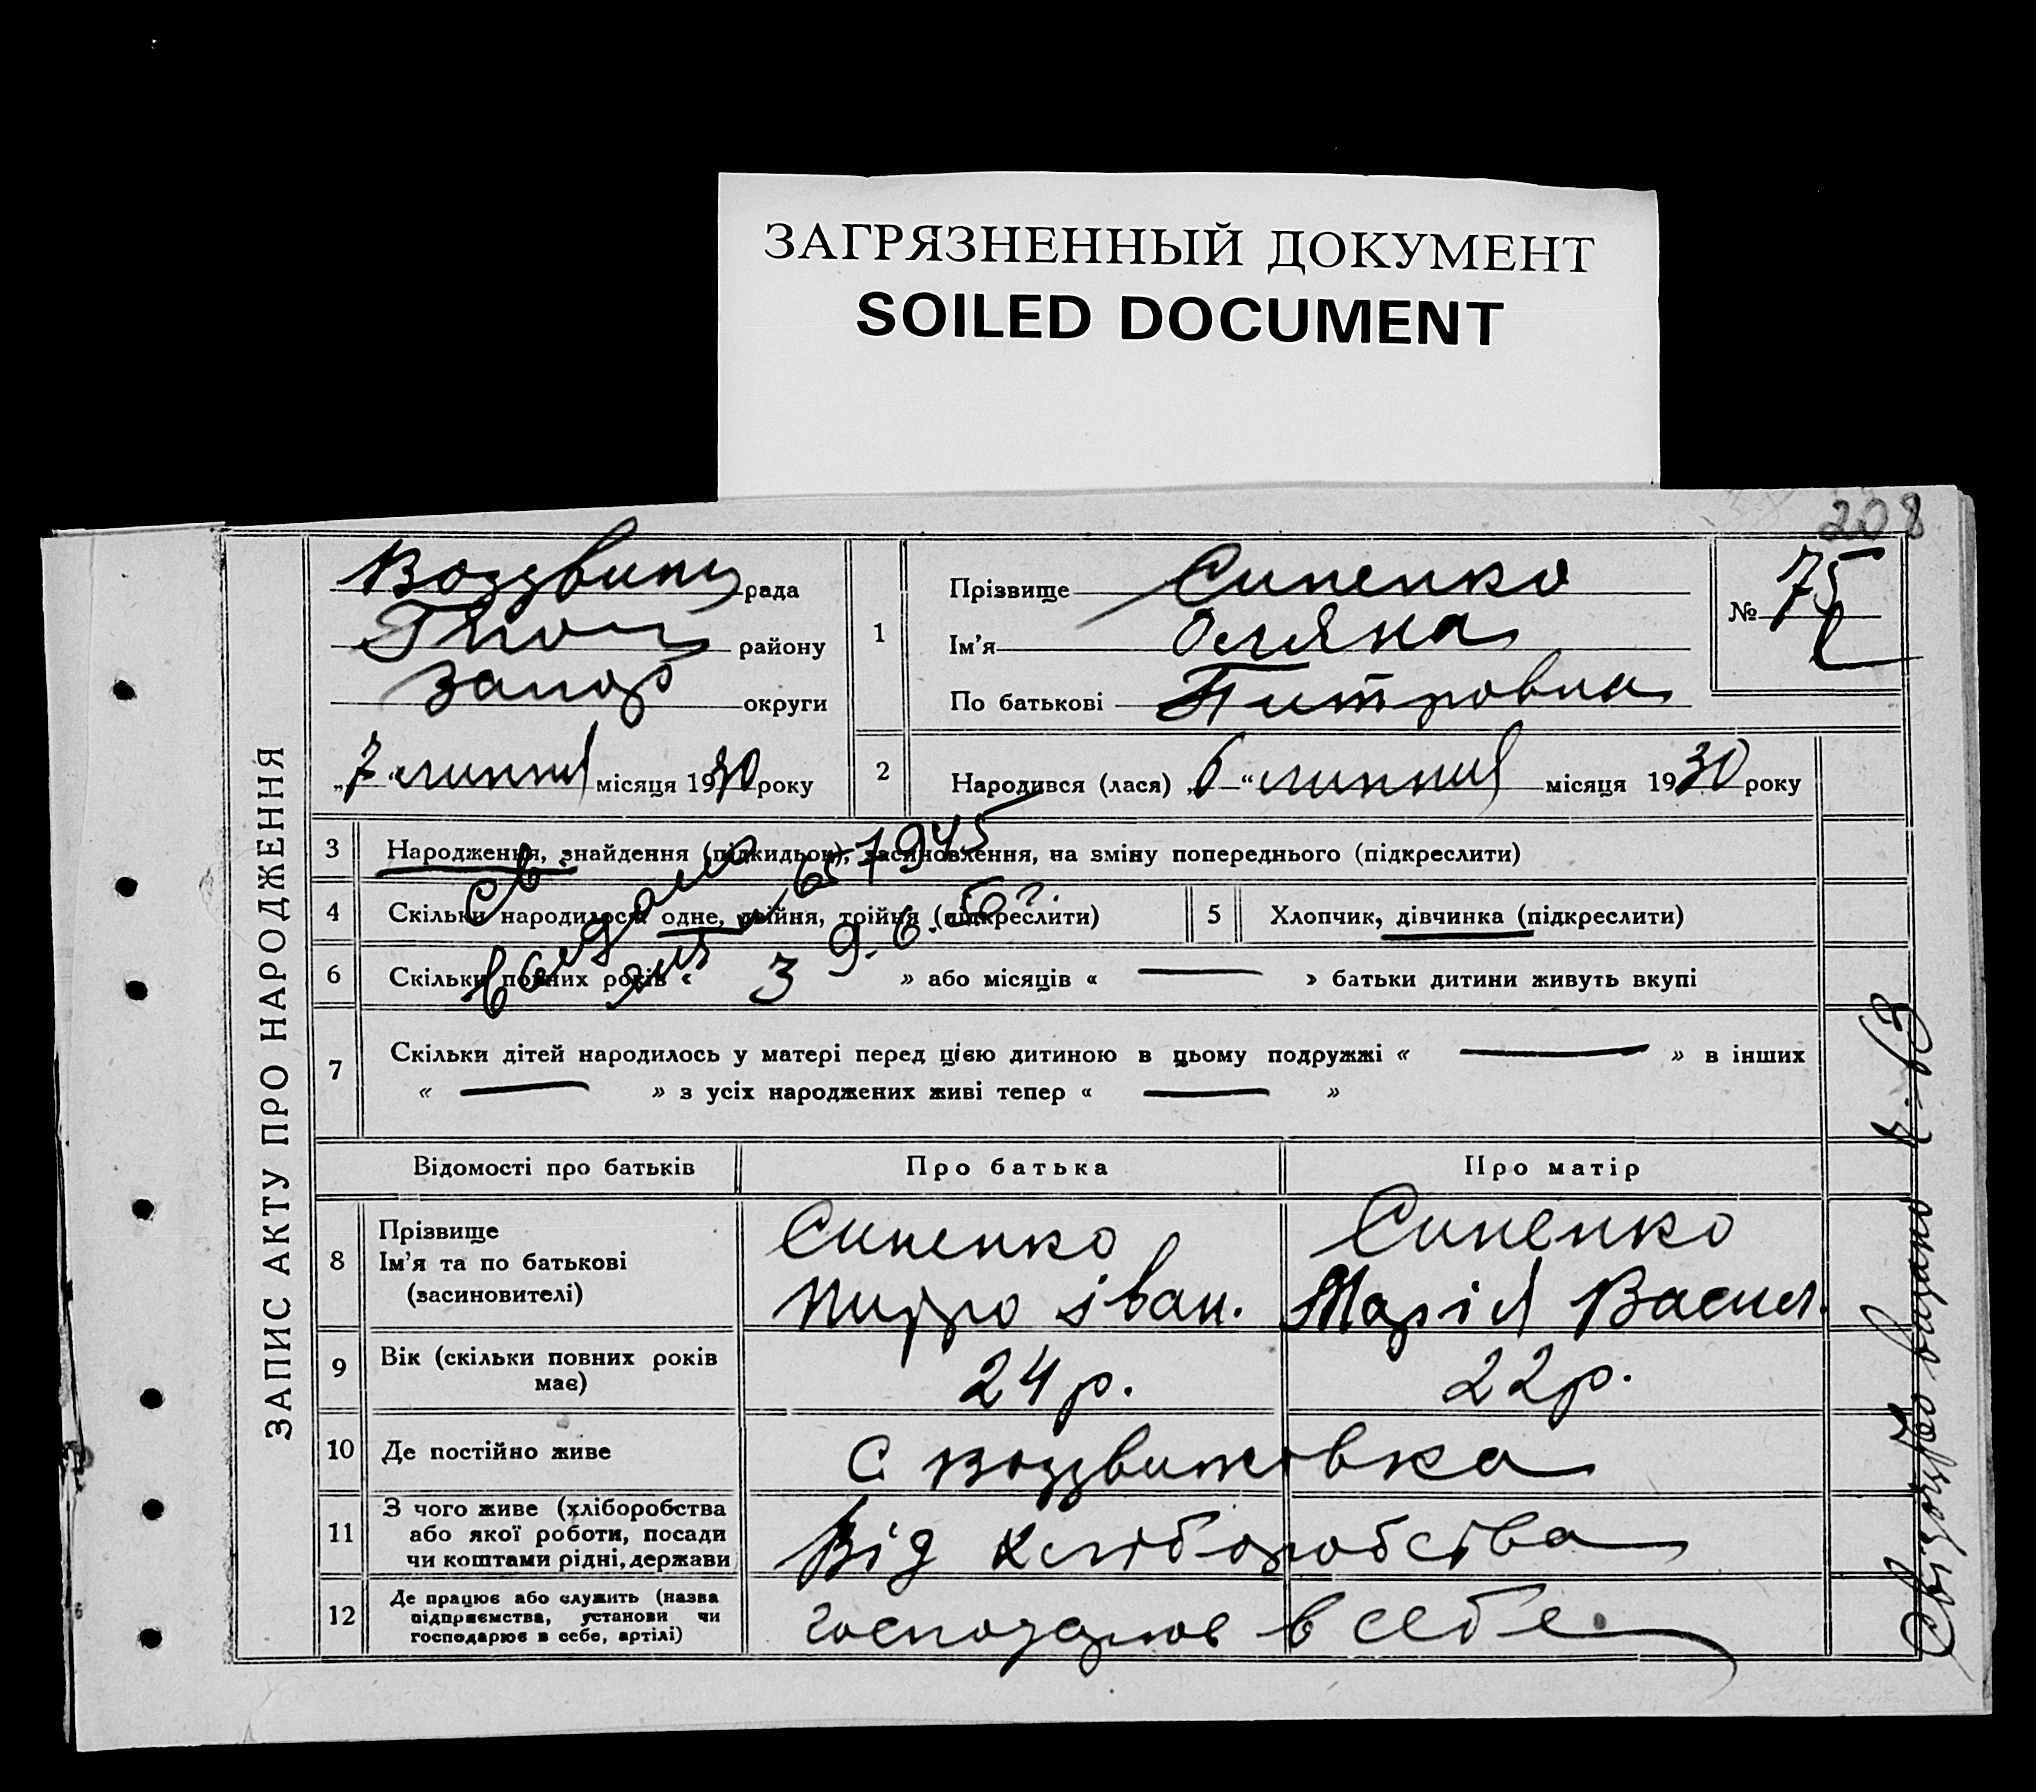 ЗАГРЯЗНЕННЫЙ ДОКУМЕНТ
SOILED DOCUMENT
208
ЗАПИС АКТУ ПРО НАРОДЖЕННЯ
рада
району
Запор округи
„7“ липня місяця 1930 року
1
Прізвище Синенко
Ім'я Оляна
По батькові Питровна
№ 75
2 Народився (лася) „6“ липня місяця 1930 року
3 Народження, знайдення (підкидьок), засиновлення, на зміну попереднього (підкреслити)
4 Скільки народилося: одне, двійня, трійня (підкреслити)
5 Хлопчик, дівчинка (підкреслити)
Св. 1945
9.6.50 г.
6 Скільки повних років « 3 » або місяців « — » батьки дитини живуть вкупі
7 Скільки дітей народилось у матері перед цією дитиною в цьому подружжі « — » в інших
« — » з усіх народжених живі тепер « — »
Відомості про батьків Про батька Про матір
8 Прізвище
Ім'я та по батькові
(засиновителі)
Синенко
іван.
Синенко
Марія Васил.
9 Вік (скільки повних років
має)
24 р. 22 р.
10 Де постійно живе
с Воздвижовка
11 З чого живе (хліборобства
або якої роботи, посади
чи коштами рідні, держави
Від хліборобства
12 Де працює або служить (назва
підприємства, установи чи
господарює в себе, артілі)
господарює в себе